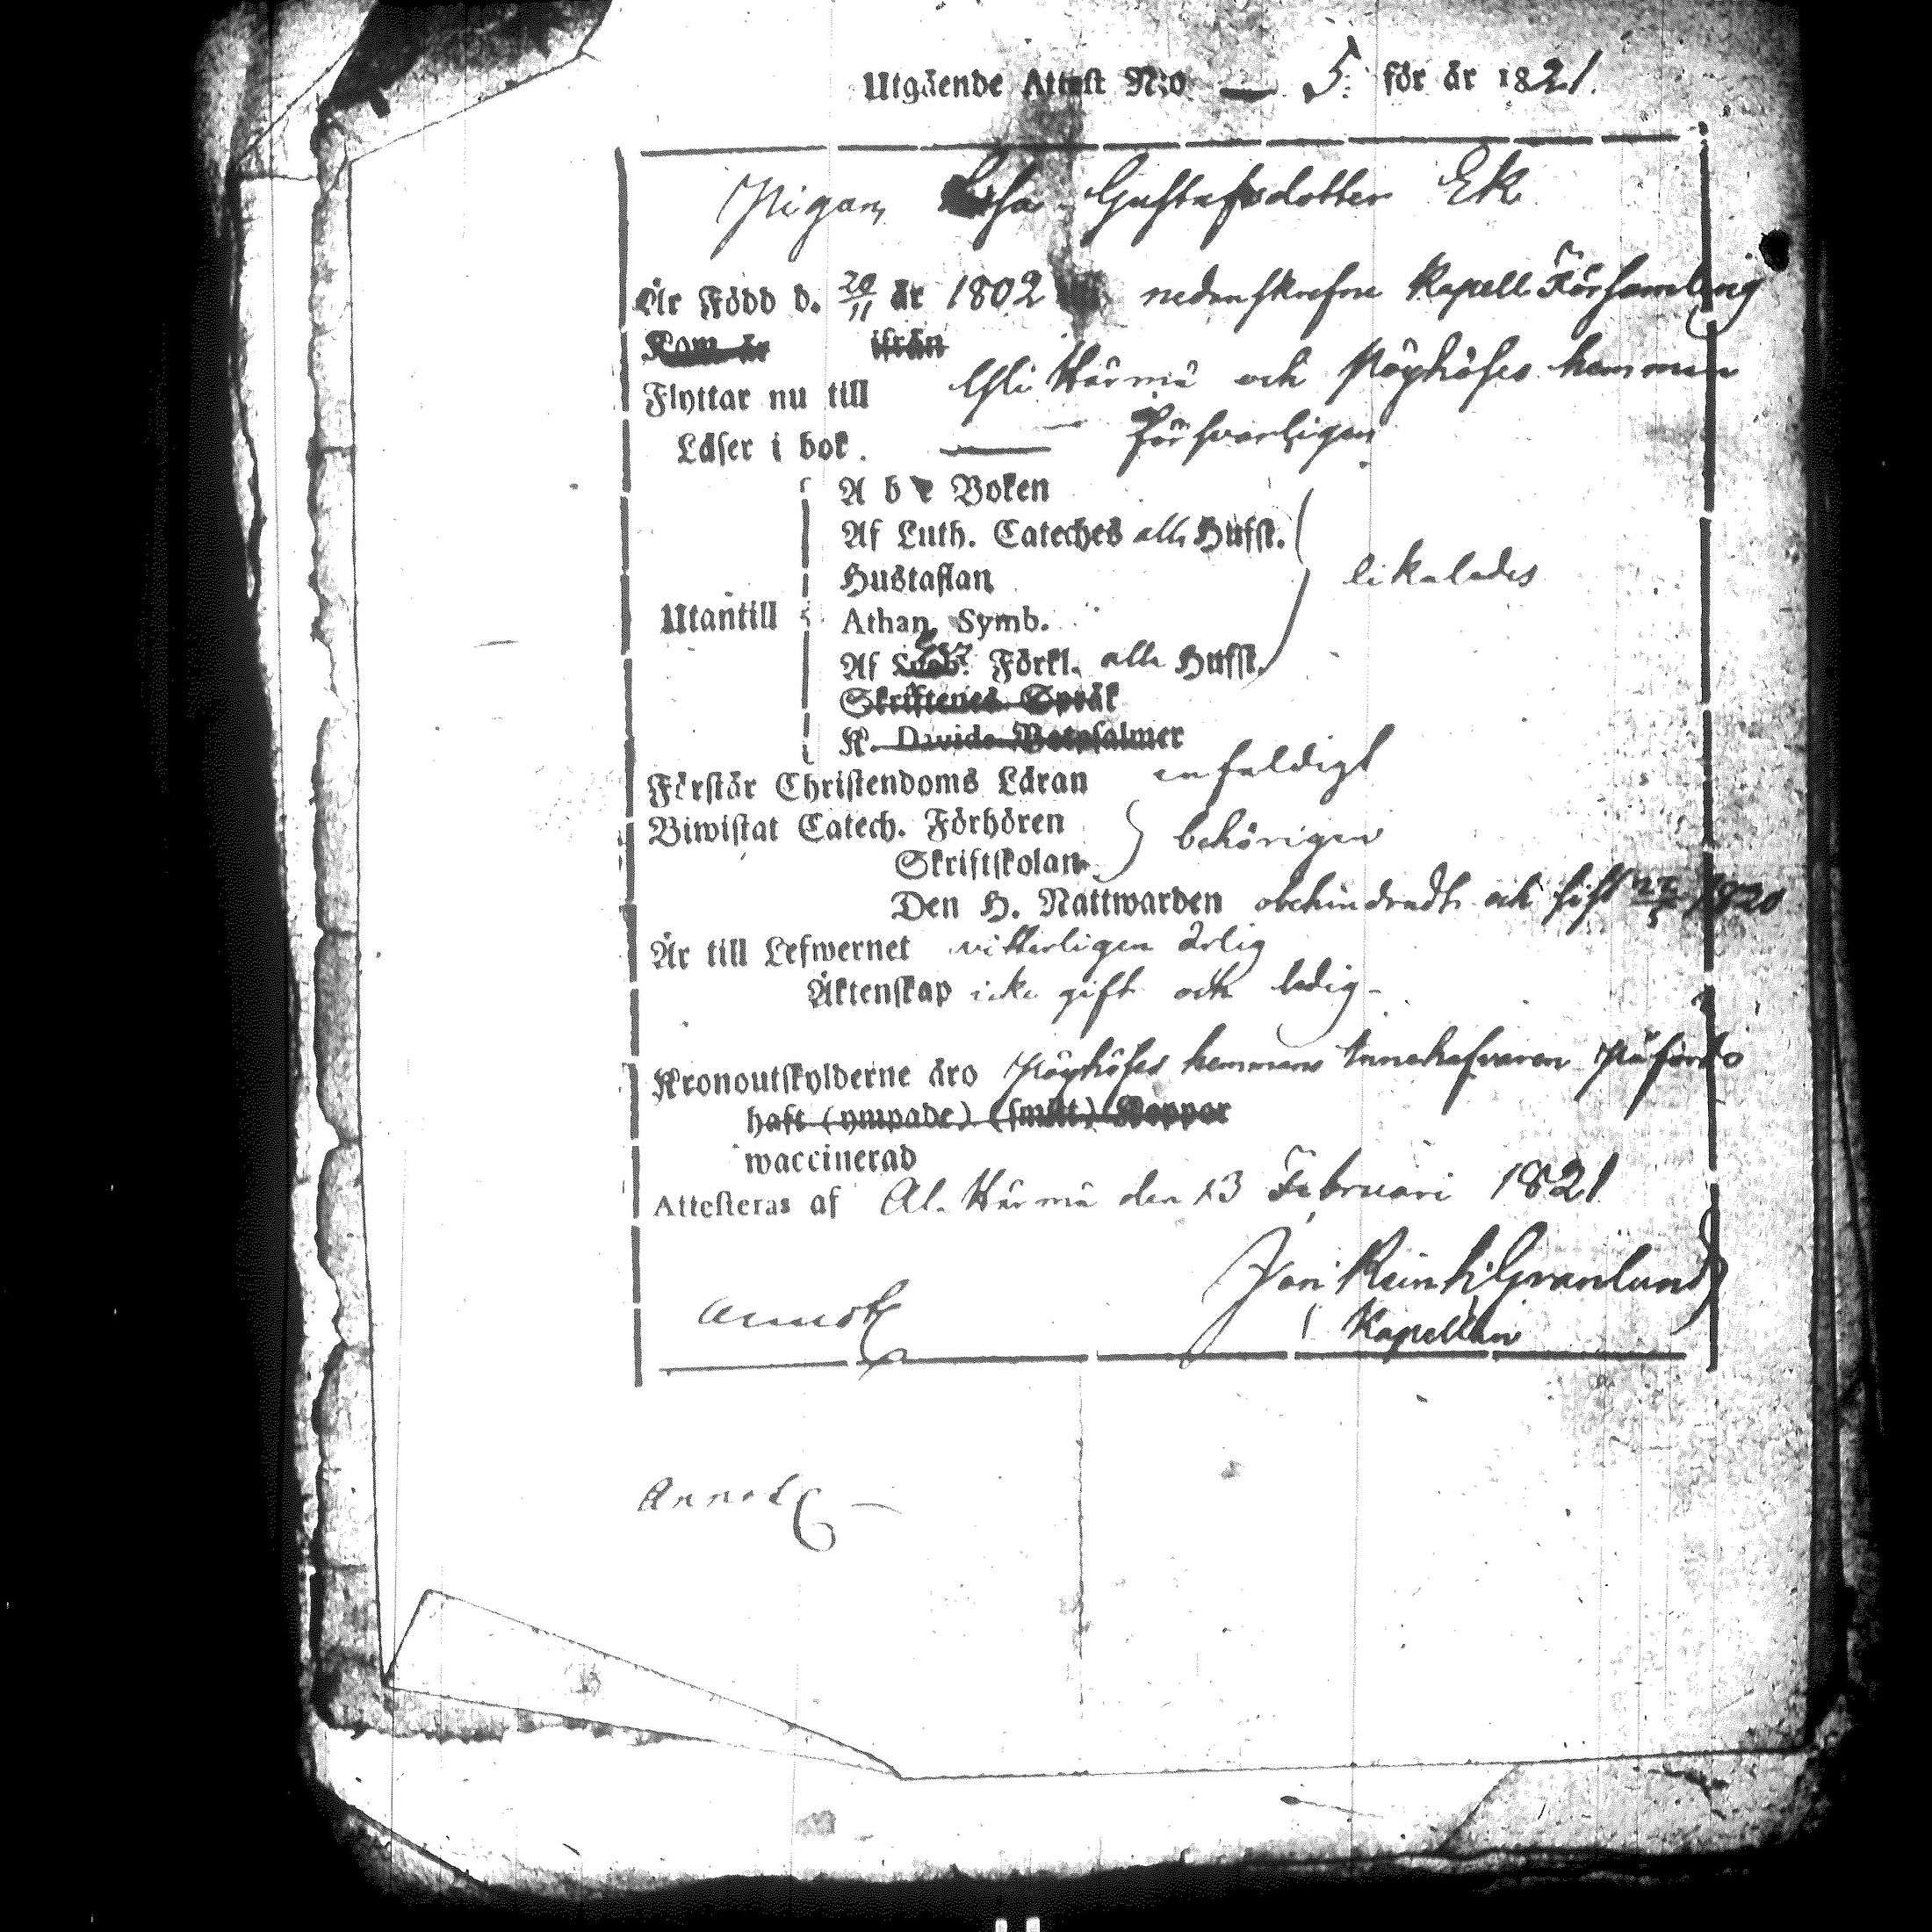 Utgående Attest N:o — 5. för år 1821.
Pigan Lisa Gustafsdotter Ek
Är Född d. 20/11 år 1802 nedanskrefne Kapell Församling
Kom år ifrån
Flyttar nu till Ylli Härmä och Pöyhöses hemman
Läser i bok. — försvarligen
A b c Boken
Af Luth. Cateches alla Hufst.
Hustaflan likaledes
Utantill Athan. Symb.
Af Förkl. alla Hufst.
Skriftenes Språk
K. Davids Botpsalmer
Förstår Christendoms Läran enfaldigt
Biwistat Catech. Förhören
Skriftskolan behörigen
Den H. Nattwarden obehindradt och sist 1820
Är till Lefwernet vitterligen ärlig
Äktenskap icke gift och ledig
Kronoutskylderne äro Pöyhöses hemmans Innehafvaren påförde
haft (ympade) (smitt) Koppor
waccinerad
Attesteras af Al. Härmä den 13 Februari 1821
Granlund
Kapellan